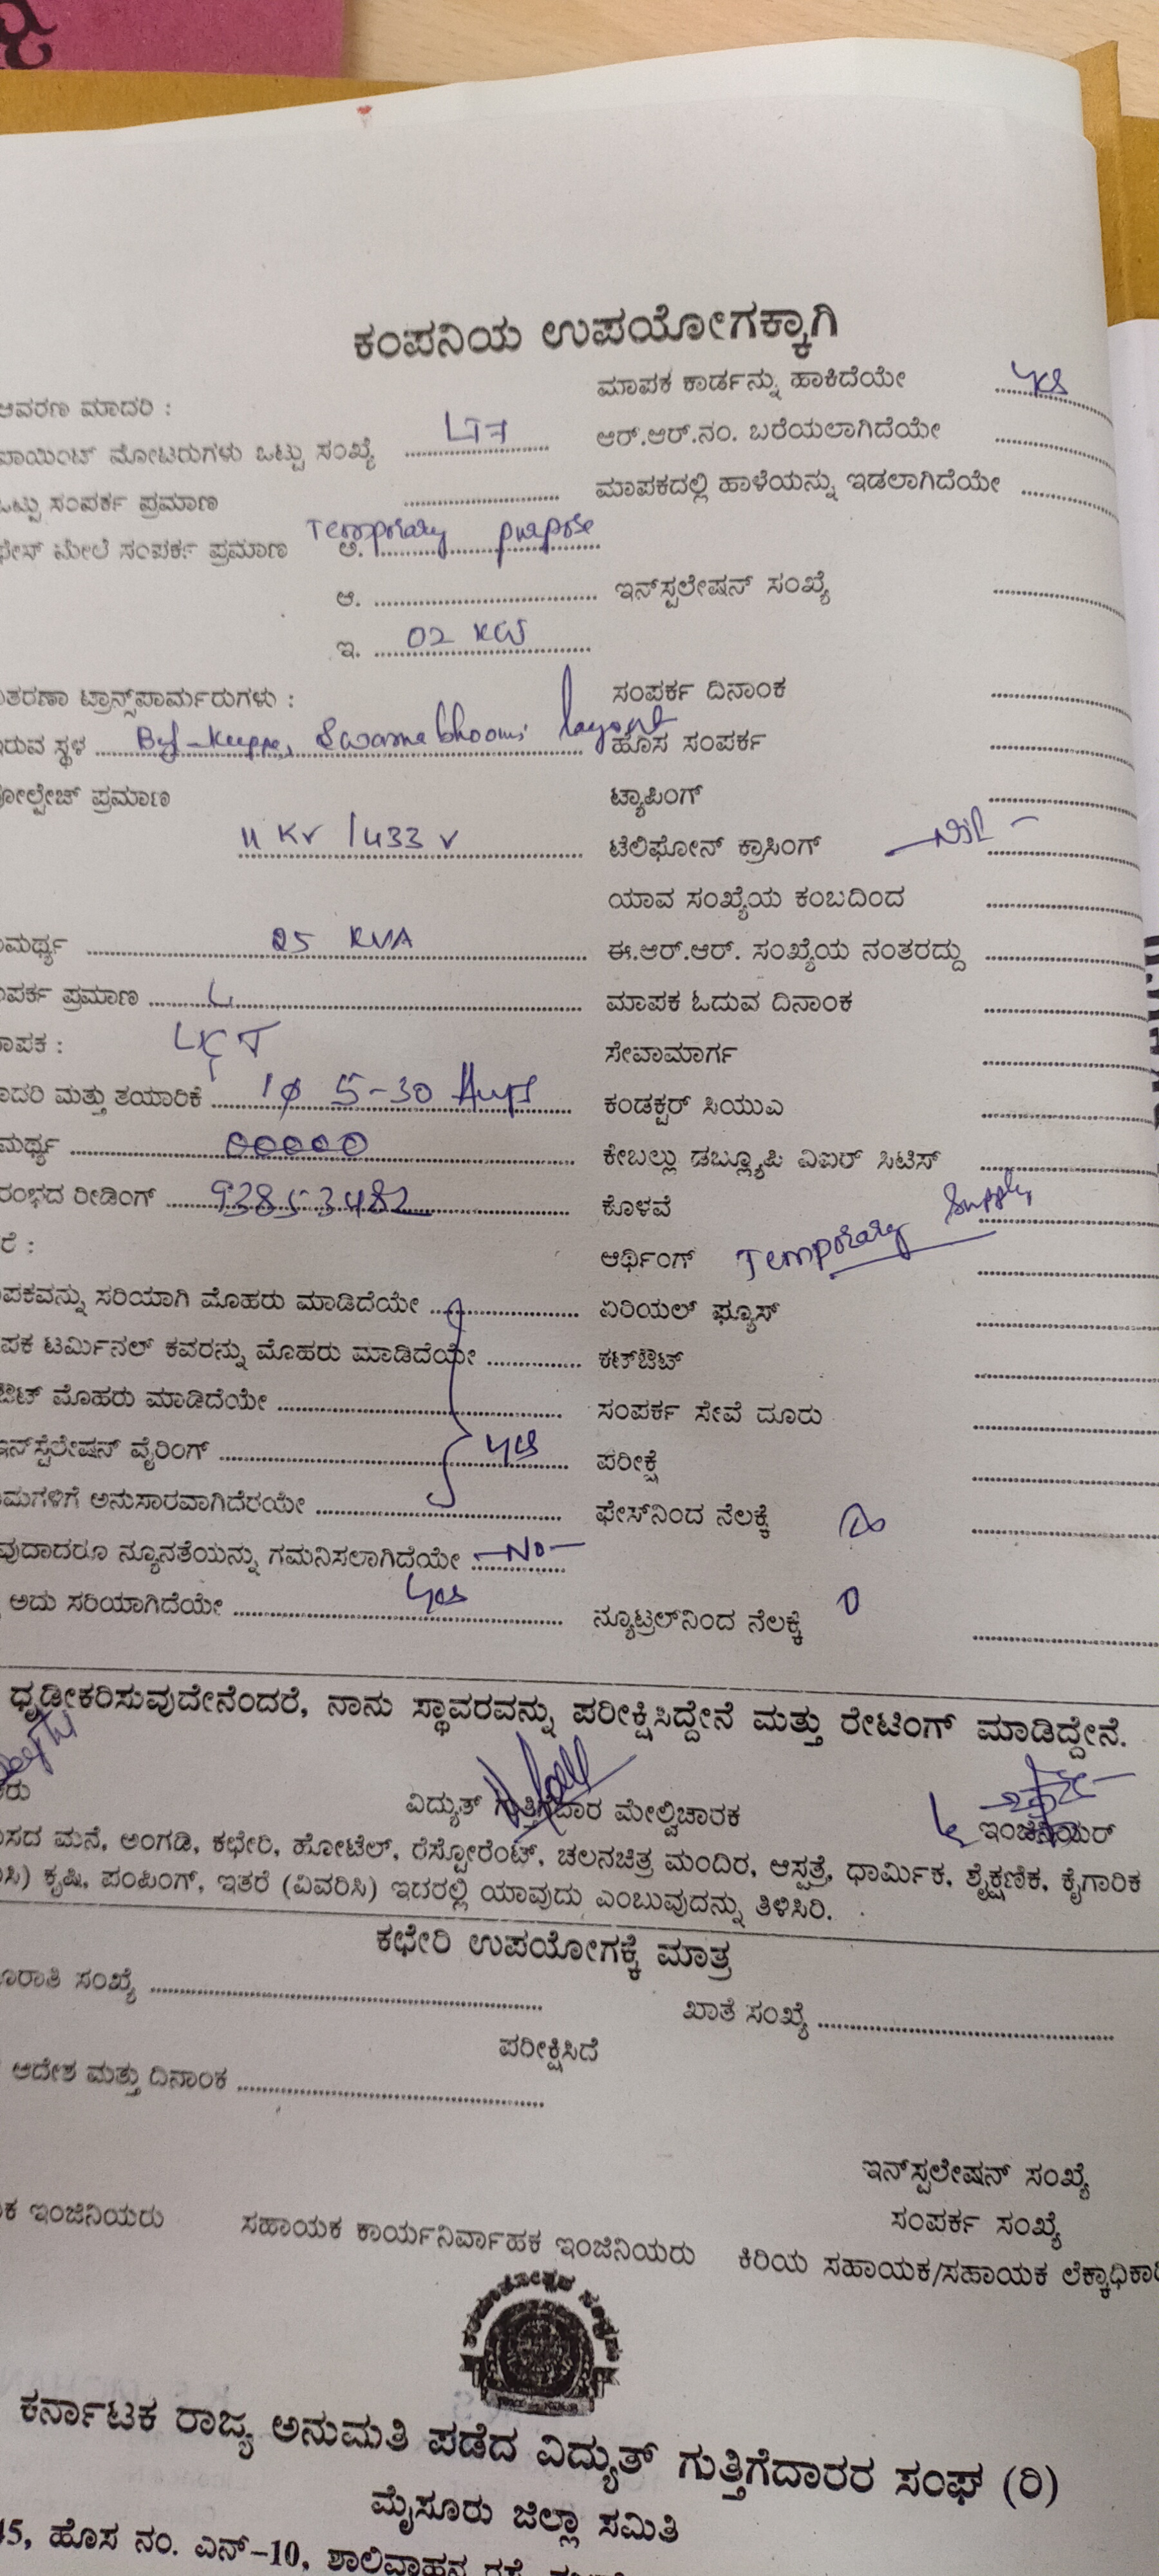 ಕಂಪನಿಯ ಉಪಯೋಗಕ್ಕಾಗಿ
ಆವರಣ ಮಾದರಿ :
ಪಾಯಿಂಟ್ ಮೋಟರುಗಳು ಒಟ್ಟು ಸಂಖ್ಯೆ LT7
ಒಟ್ಟು ಸಂಪರ್ಕ ಪ್ರಮಾಣ
ಫೇಸ್ ಮೇಲೆ ಸಂಪರ್ಕ ಪ್ರಮಾಣ ಅ. Temporary purpose
ಆ.
ಇ. 02 KW
ತರಣಾ ಟ್ರಾನ್ಸ್‌ಫಾರ್ಮರುಗಳು :
ಇರುವ ಸ್ಥಳ Swarnabhoomi layout
ವೋಲ್ಟೇಜ್ ಪ್ರಮಾಣ
11 KV / 433 V
ಮರ್ಥ್ಯ 25 KVA
ಪರ್ಕ ಪ್ರಮಾಣ L
ಾಪಕ : L&T
ಾದರಿ ಮತ್ತು ತಯಾರಿಕೆ 1ϕ 5-30 Amps
ಮರ್ಥ್ಯ 00000
ರಂಭದ ರೀಡಿಂಗ್ 93853482
ರೆ :
ಪಕವನ್ನು ಸರಿಯಾಗಿ ಮೊಹರು ಮಾಡಿದೆಯೇ
ಪಕ ಟರ್ಮಿನಲ್ ಕವರನ್ನು ಮೊಹರು ಮಾಡಿದೆಯೇ
ಔಟ್ ಮೊಹರು ಮಾಡಿದೆಯೇ
ಇನ್‌ಸ್ಟೆಲೇಷನ್ ವೈರಿಂಗ್ yes
ಮಗಳಿಗೆ ಅನುಸಾರವಾಗಿದೆರಯೇ
ವುದಾದರೂ ನ್ಯೂನತೆಯನ್ನು ಗಮನಿಸಲಾಗಿದೆಯೇ -No-
ಅದು ಸರಿಯಾಗಿದೆಯೇ Yes
ಮಾಪಕ ಕಾರ್ಡನ್ನು ಹಾಕಿದೆಯೇ yes
ಆರ್.ಆರ್.ನಂ. ಬರೆಯಲಾಗಿದೆಯೇ
ಮಾಪಕದಲ್ಲಿ ಹಾಳೆಯನ್ನು ಇಡಲಾಗಿದೆಯೇ
ಇನ್‌ಸ್ಪಲೇಷನ್ ಸಂಖ್ಯೆ
ಸಂಪರ್ಕ ದಿನಾಂಕ
ಹೊಸ ಸಂಪರ್ಕ
ಟ್ಯಾಪಿಂಗ್
ಟೆಲಿಫೋನ್ ಕ್ರಾಸಿಂಗ್ -Nil-
ಯಾವ ಸಂಖ್ಯೆಯ ಕಂಬದಿಂದ
ಈ.ಆರ್.ಆರ್. ಸಂಖ್ಯೆಯ ನಂತರದ್ದು
ಮಾಪಕ ಓದುವ ದಿನಾಂಕ
ಸೇವಾಮಾರ್ಗ
ಕಂಡಕ್ಟರ್ ಸಿಯುಎ
ಕೇಬಲ್ಲು ಡಬ್ಲ್ಯೂಪಿ ವಿಐರ್ ಸಿಟಿಸ್
ಕೊಳವೆ
ಆರ್ಥಿಂಗ್ Temporary Supply
ಏರಿಯಲ್ ಫ್ಯೂಸ್
ಕಟ್‌ಔಟ್
ಸಂಪರ್ಕ ಸೇವೆ ದೂರು
ಪರೀಕ್ಷೆ
ಫೇಸ್‌ನಿಂದ ನೆಲಕ್ಕೆ ∞
ನ್ಯೂಟ್ರಲ್‌ನಿಂದ ನೆಲಕ್ಕೆ 0
ಧೃಡೀಕರಿಸುವುದೇನೆಂದರೆ, ನಾನು ಸ್ಥಾವರವನ್ನು ಪರೀಕ್ಷಿಸಿದ್ದೇನೆ ಮತ್ತು ರೇಟಿಂಗ್ ಮಾಡಿದ್ದೇನೆ.
ವಿದ್ಯುತ್ ಗುತ್ತಿಗೆದಾರ ಮೇಲ್ವಿಚಾರಕ ಇಂಜಿನಿಯರ್
ಸದ ಮನೆ, ಅಂಗಡಿ, ಕಛೇರಿ, ಹೋಟೆಲ್, ರೆಸ್ಟೋರೆಂಟ್, ಚಲನಚಿತ್ರ ಮಂದಿರ, ಆಸ್ಪತ್ರೆ, ಧಾರ್ಮಿಕ, ಶೈಕ್ಷಣಿಕ, ಕೈಗಾರಿಕ
ಸಿ) ಕೃಷಿ, ಪಂಪಿಂಗ್, ಇತರೆ (ವಿವರಿಸಿ) ಇದರಲ್ಲಿ ಯಾವುದು ಎಂಬುವುದನ್ನು ತಿಳಿಸಿರಿ.
ಕಛೇರಿ ಉಪಯೋಗಕ್ಕೆ ಮಾತ್ರ
ಾರಾತಿ ಸಂಖ್ಯೆ ಖಾತೆ ಸಂಖ್ಯೆ
ಪರೀಕ್ಷಿಸಿದೆ
ಆದೇಶ ಮತ್ತು ದಿನಾಂಕ
ಇನ್‌ಸ್ಪಲೇಷನ್ ಸಂಖ್ಯೆ
ಸಂಪರ್ಕ ಸಂಖ್ಯೆ
ಕ ಇಂಜಿನಿಯರು ಸಹಾಯಕ ಕಾರ್ಯನಿರ್ವಾಹಕ ಇಂಜಿನಿಯರು ಕಿರಿಯ ಸಹಾಯಕ/ಸಹಾಯಕ ಲೆಕ್ಕಾಧಿಕಾರಿ
ಕರ್ನಾಟಕ ರಾಜ್ಯ ಅನುಮತಿ ಪಡೆದ ವಿದ್ಯುತ್ ಗುತ್ತಿಗೆದಾರರ ಸಂಘ (ರಿ)
ಮೈಸೂರು ಜಿಲ್ಲಾ ಸಮಿತಿ
45, ಹೊಸ ನಂ. ಎನ್-10, ಶಾಲಿವಾಹನ ರಸ್ತೆ,